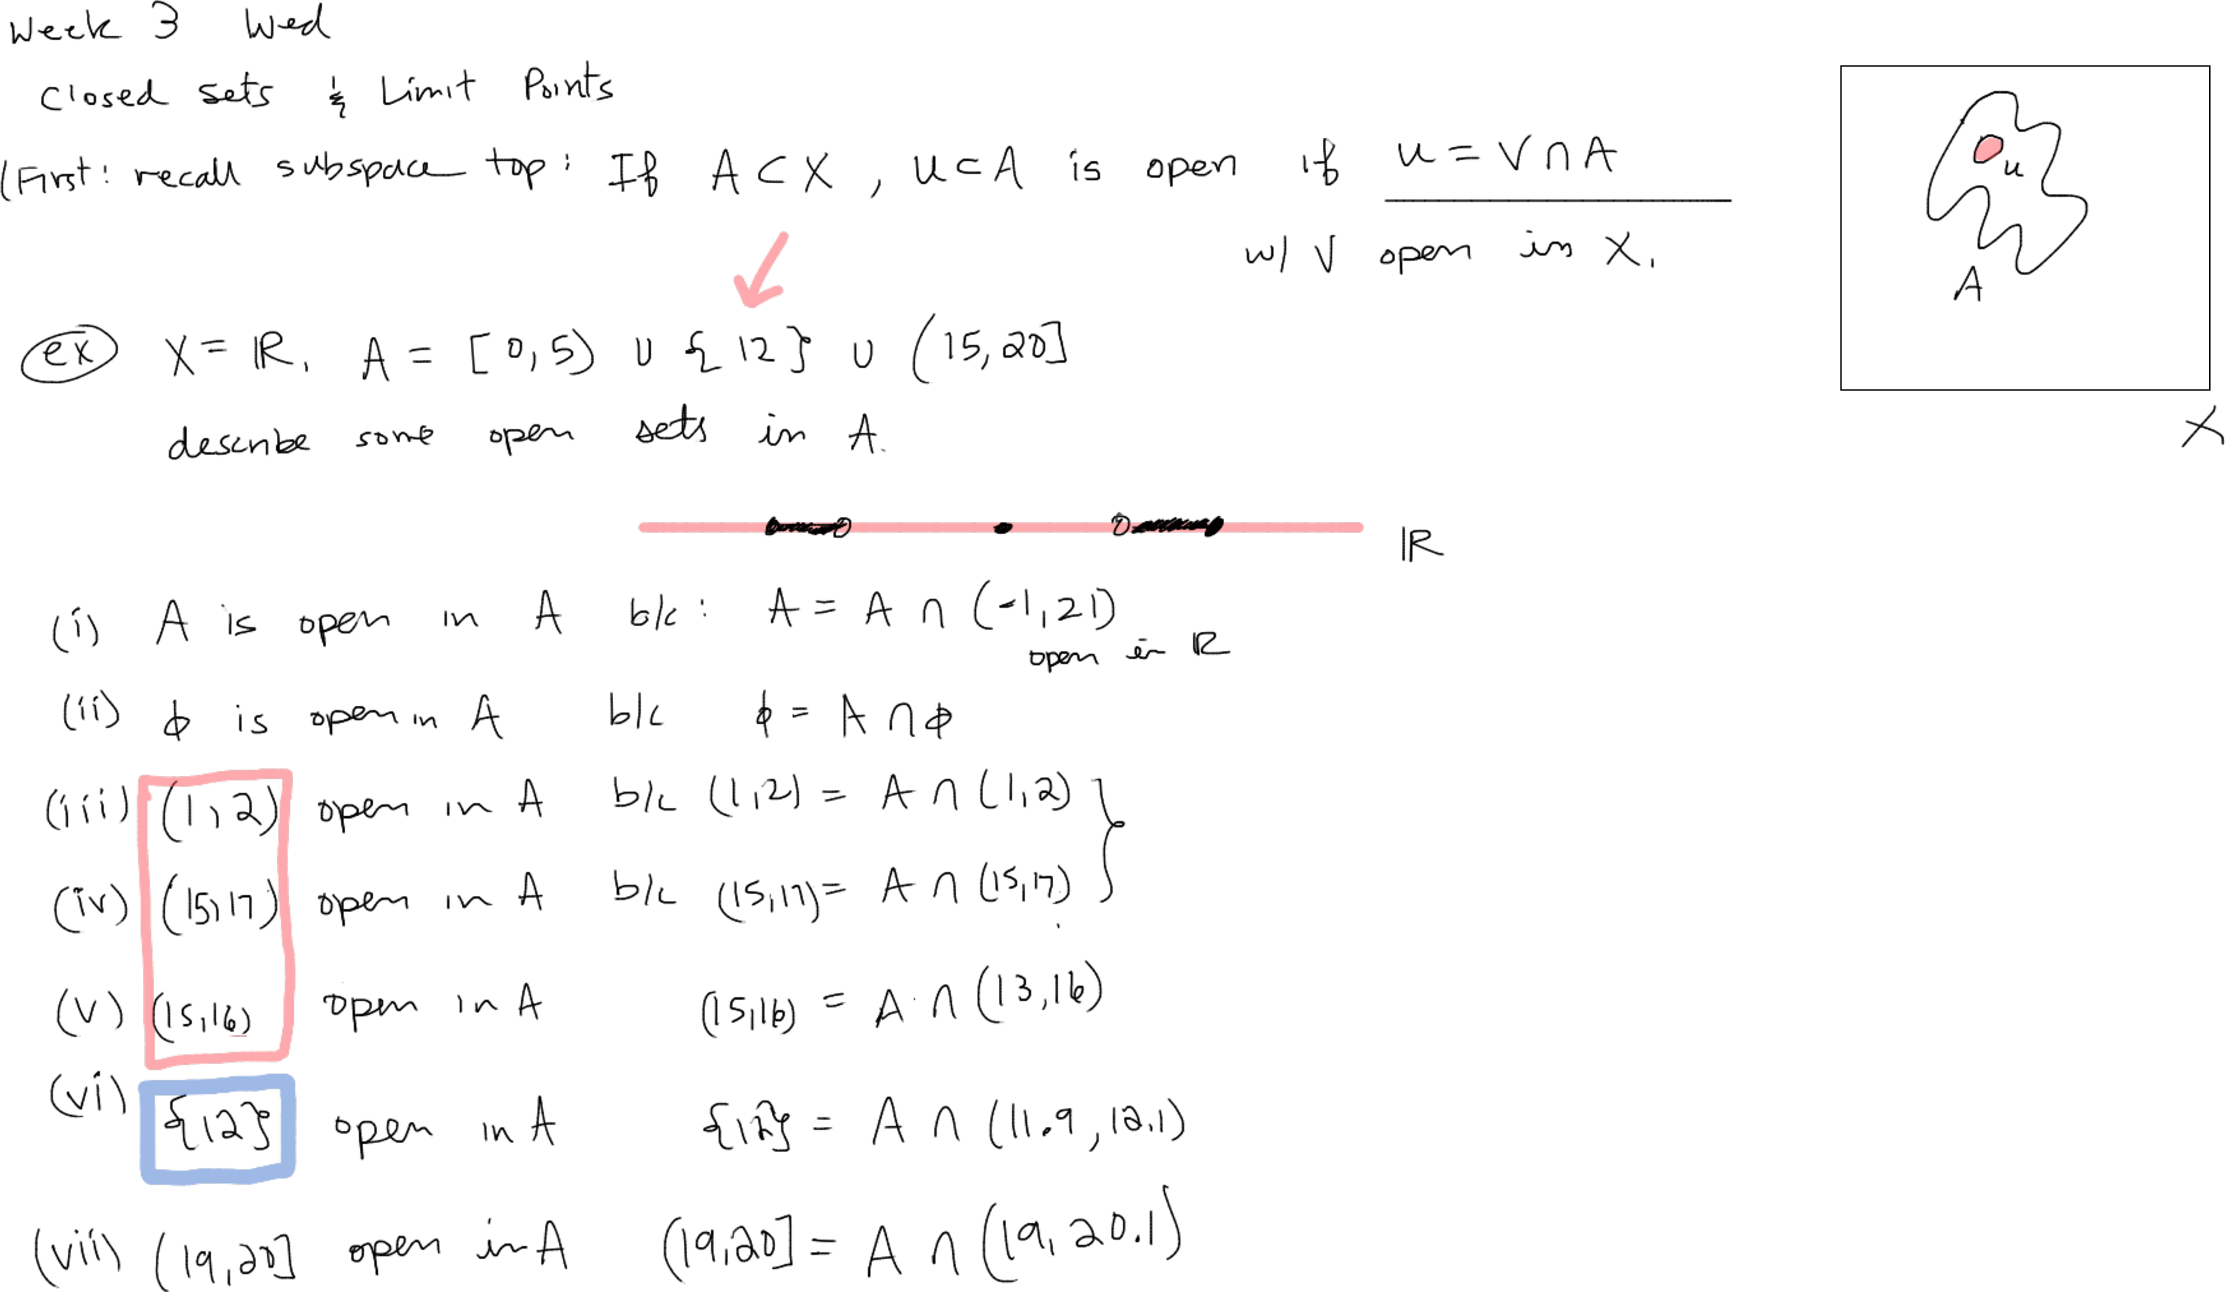 Week 3 Wed
Closed sets & Limit Points
(First: recall subspace top: If A ⊂ X, U ⊂ A is open if U = V ∩ A
w/ V open in X.
U
A
X
ex X = ℝ, A = [0,5) ∪ {12} ∪ (15,20]
describe some open sets in A.
ℝ
(i) A is open in A b/c: A = A ∩ (-1,21)
open in ℝ
(ii) ϕ is open in A b/c ϕ = A ∩ ϕ
(iii) (1,2) open in A b/c (1,2) = A ∩ (1,2)
(iv) (15,17) open in A b/c (15,17) = A ∩ (15,17)
(v) (15,16) open in A (15,16) = A ∩ (13,16)
(vi) {12} open in A {12} = A ∩ (11.9, 12.1)
(vii) (19,20] open in A (19,20] = A ∩ (19, 20.1)